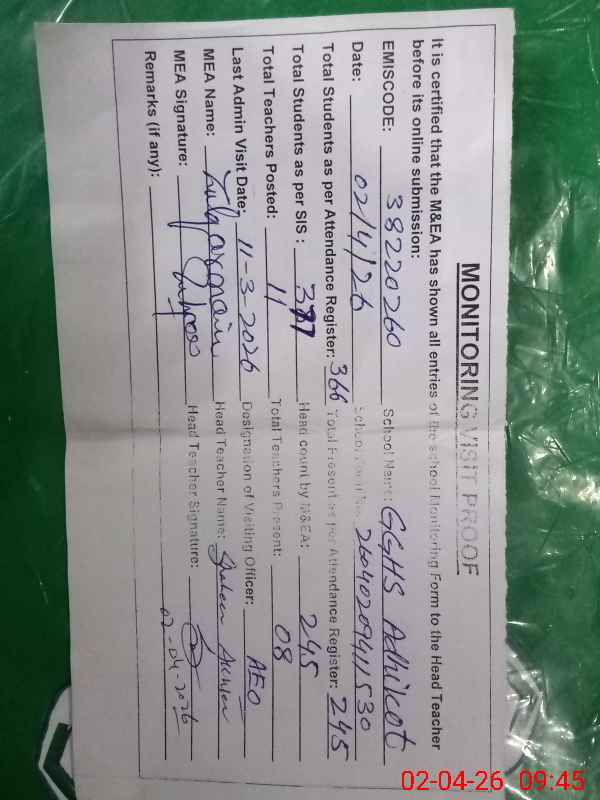 MONITORING VISIT PROOF
It is certified that the M&EA has shown all entries of the school Monitoring Form to the Head Teacher
before its online submission:
EMISCODE: 38220260 School Name: GGHS Adhikot
Date: 02/4/26
Total Students as per Attendance Register: 366 Total Present as per Attendance Register: 245
Total Students as per SIS : 387 Head count by M&EA: 245
Total Teachers Posted: 11 Total Teachers Present: 08
Last Admin Visit Date: 11-3-2026 Designation of Visiting Officer: AEO
MEA Name: Zulqarnain Head Teacher Name: Shaheen Akhter
MEA Signature: Head Teacher Signature:
Remarks (if any): 02-04-2026
02-04-26 09:45